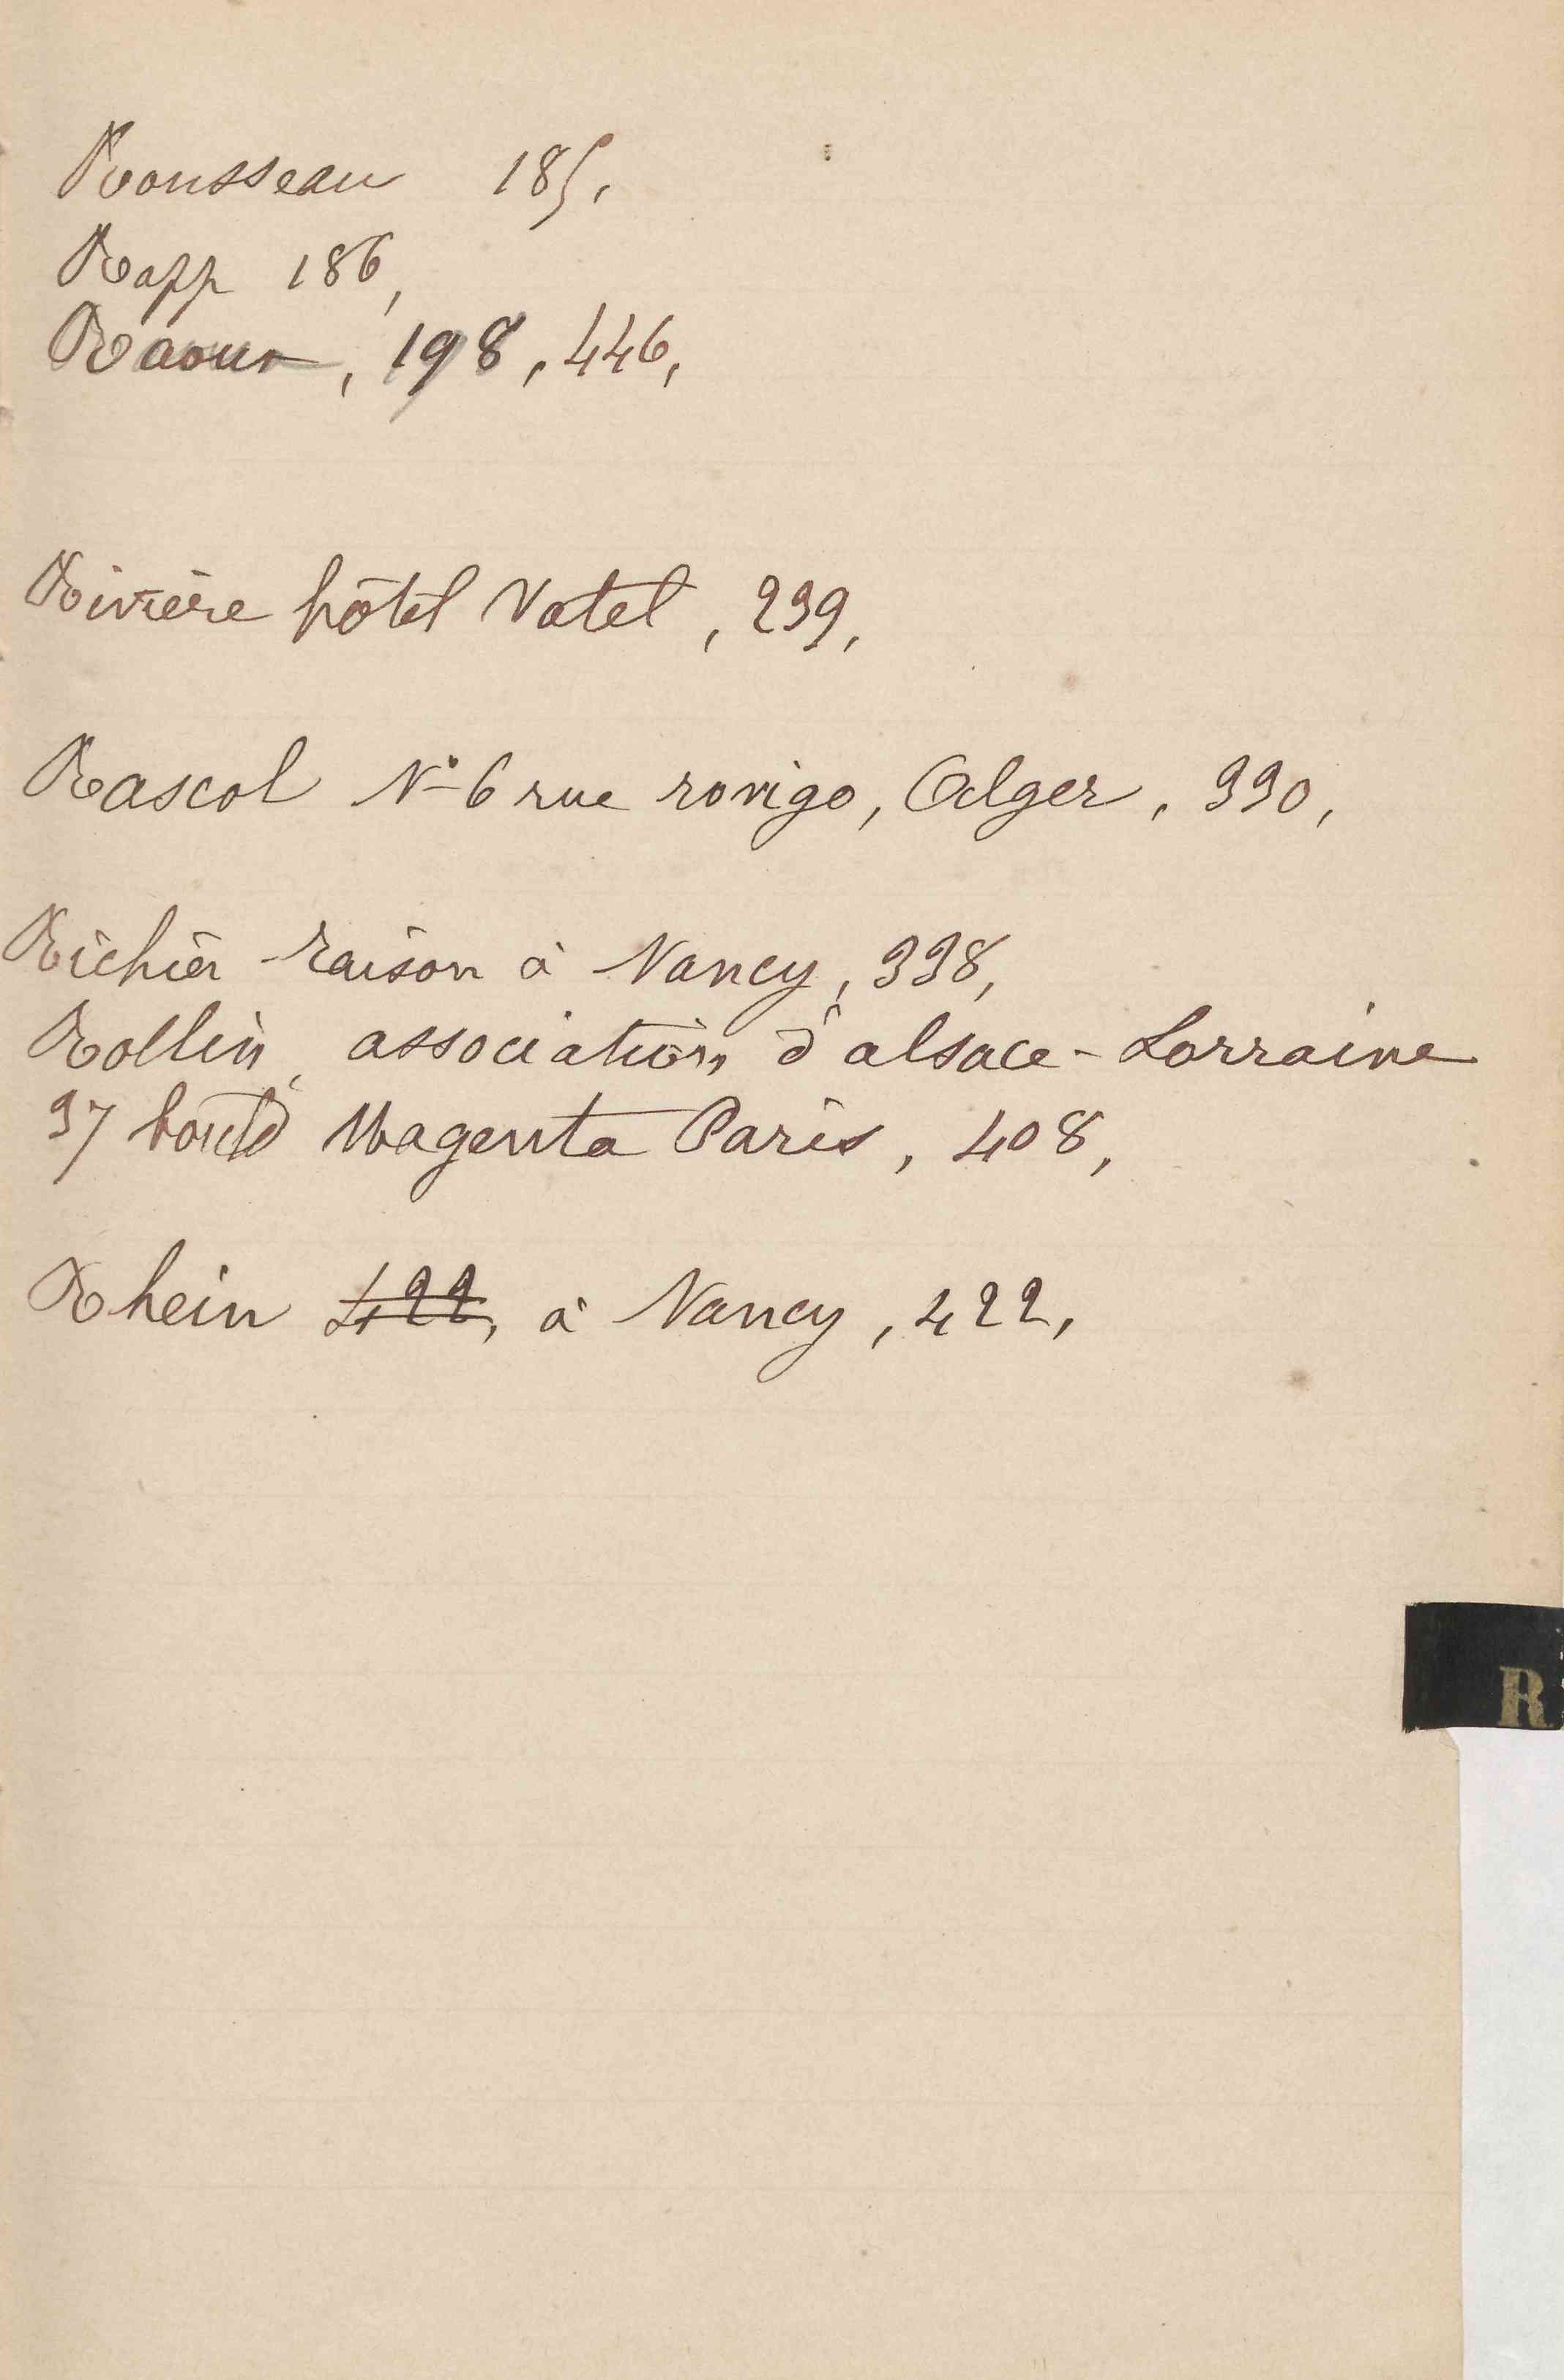 Rousseau 185,
Rapp 186,
Raour, 198, 446,
Rivière hôtel Vatel, 239,
Rascol N° 6 rue rovigo, Alger, 330,
Richier raison à Nancy, 338,
Rollin, association d'alsace-Lorraine
37 boul'd Magenta Paris, 408,
Rhein 422, à Nancy, 422,
R